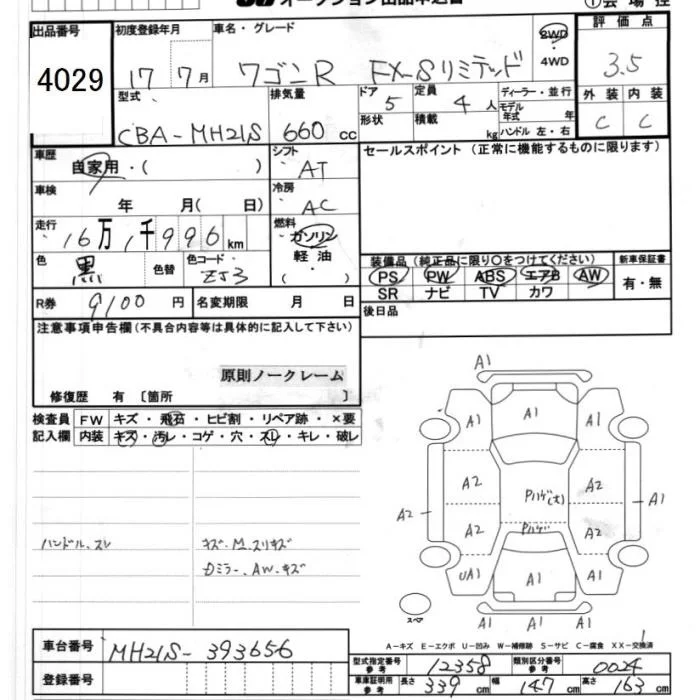 オークション出品申込書 ①会場控
出品番号 初度登録年月 車名・グレード 2WD 評価点
4029 17 7月 ワゴンR FX-Sリミテッド ・4WD 3.5
型式 排気量 ドア 定員 ディーラー・並行 外装 内装
CBA-MH21S 660cc 5 4人 モデル年式 年 C C
形状 積載 kg ハンドル 左・右
車歴 シフト セールスポイント (正常に機能するものに限ります)
自家用・( ) AT
車検 年 月( 日) 冷房 AC
走行 16万1千996km 燃料 ガソリン
色 黒 色替 色コード ZJ3 軽油・( )
装備品(純正品に限り〇をつけてください) 新車保証書
PS PW ABS エアB AW 有・無
SR ナビ TV カワ
R券 9100円 名変期限 月 日 後日品
注意事項申告欄(不具合内容等は具体的に記入して下さい)
原則ノークレーム
修復歴 有〔箇所 〕
検査員 FW キズ・飛石・ヒビ割・リペア跡・×要
記入欄 内装 キズ・汚レ・コゲ・穴・スレ・キレ・破レ
ハンドル、スレ キズ・M.スリキズ
Dミラー、AW.キズ
A1
A1 A1 A1
A2 A2 Pハゲ(大) A2 A1
A2 Pハゲ A2
UA1 A1 A1
スペア A1 A1
A-キズ E-エクボ U-凹み W-補修跡 S-サビ C-腐食 XX-交換済
車台番号 MH21S-393656
登録番号
型式指定番号 参考 12358 類別区分番号 参考 0024
車庫証明用 参考 長さ 339cm 幅 147cm 高さ 163cm